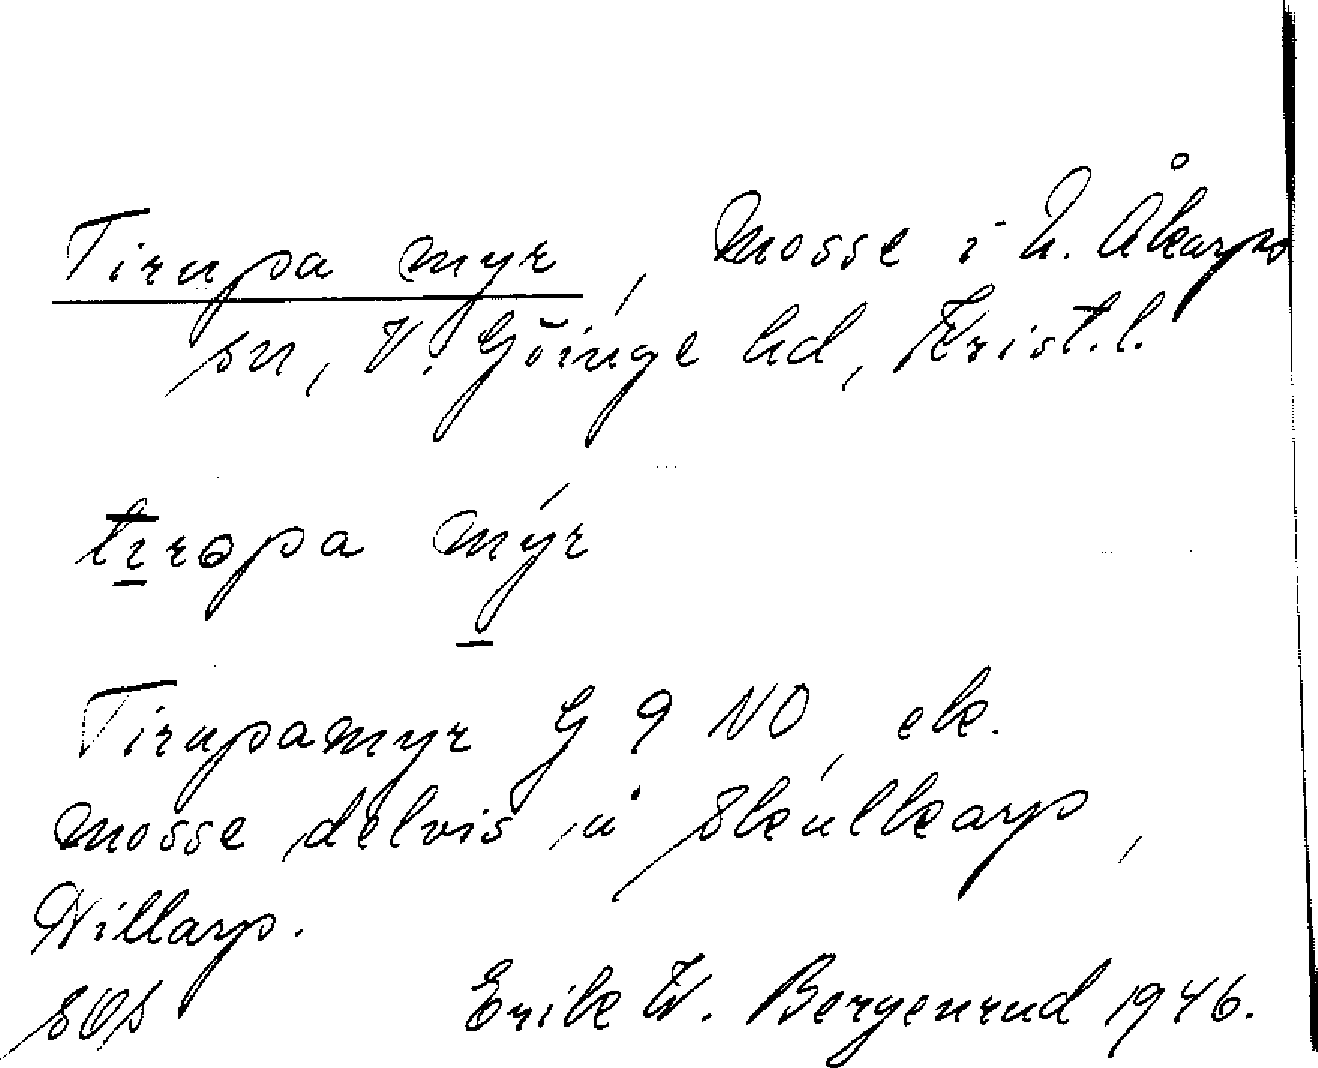 Tirupa myr, Mosse i N. Åkarps
sn, V. Göinge hd, Krist. l.
tirøpa mýr
Tirupamyr G 9 NO, ek.
mosse delvis, å Skulkarp,
Willarp.
SOS Erik W. Bergenrud 1946.